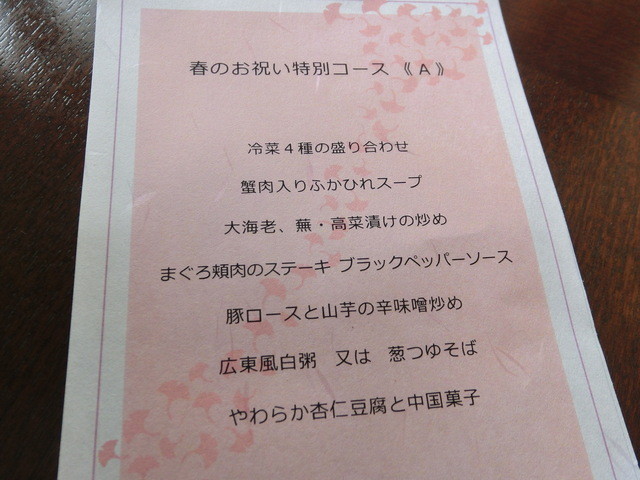 春のお祝い特別コース 《A》
冷菜4種の盛り合わせ
蟹肉入りふかひれスープ
大海老、蕪・高菜漬けの炒め
まぐろ頬肉のステーキ ブラックペッパーソース
豚ロースと山芋の辛味噌炒め
広東風白粥 又は 葱つゆそば
やわらか杏仁豆腐と中国菓子